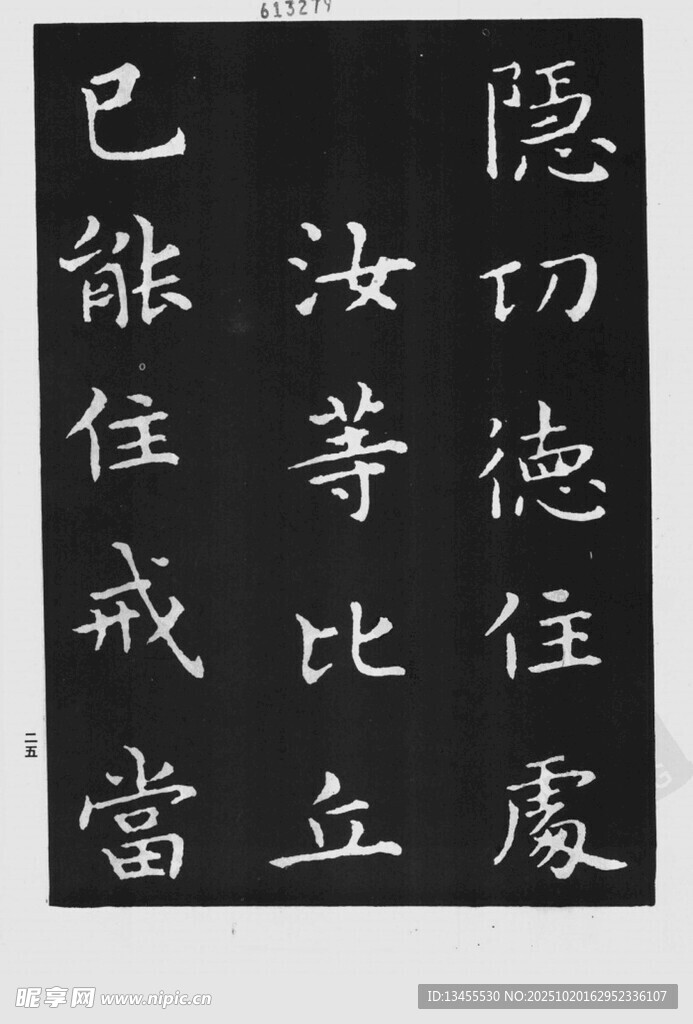 613279
隱切德住處
汝等比丘
已能住戒當
二五
昵享网 www.nipic.cn
ID:13455530 NO:20251020162952336107